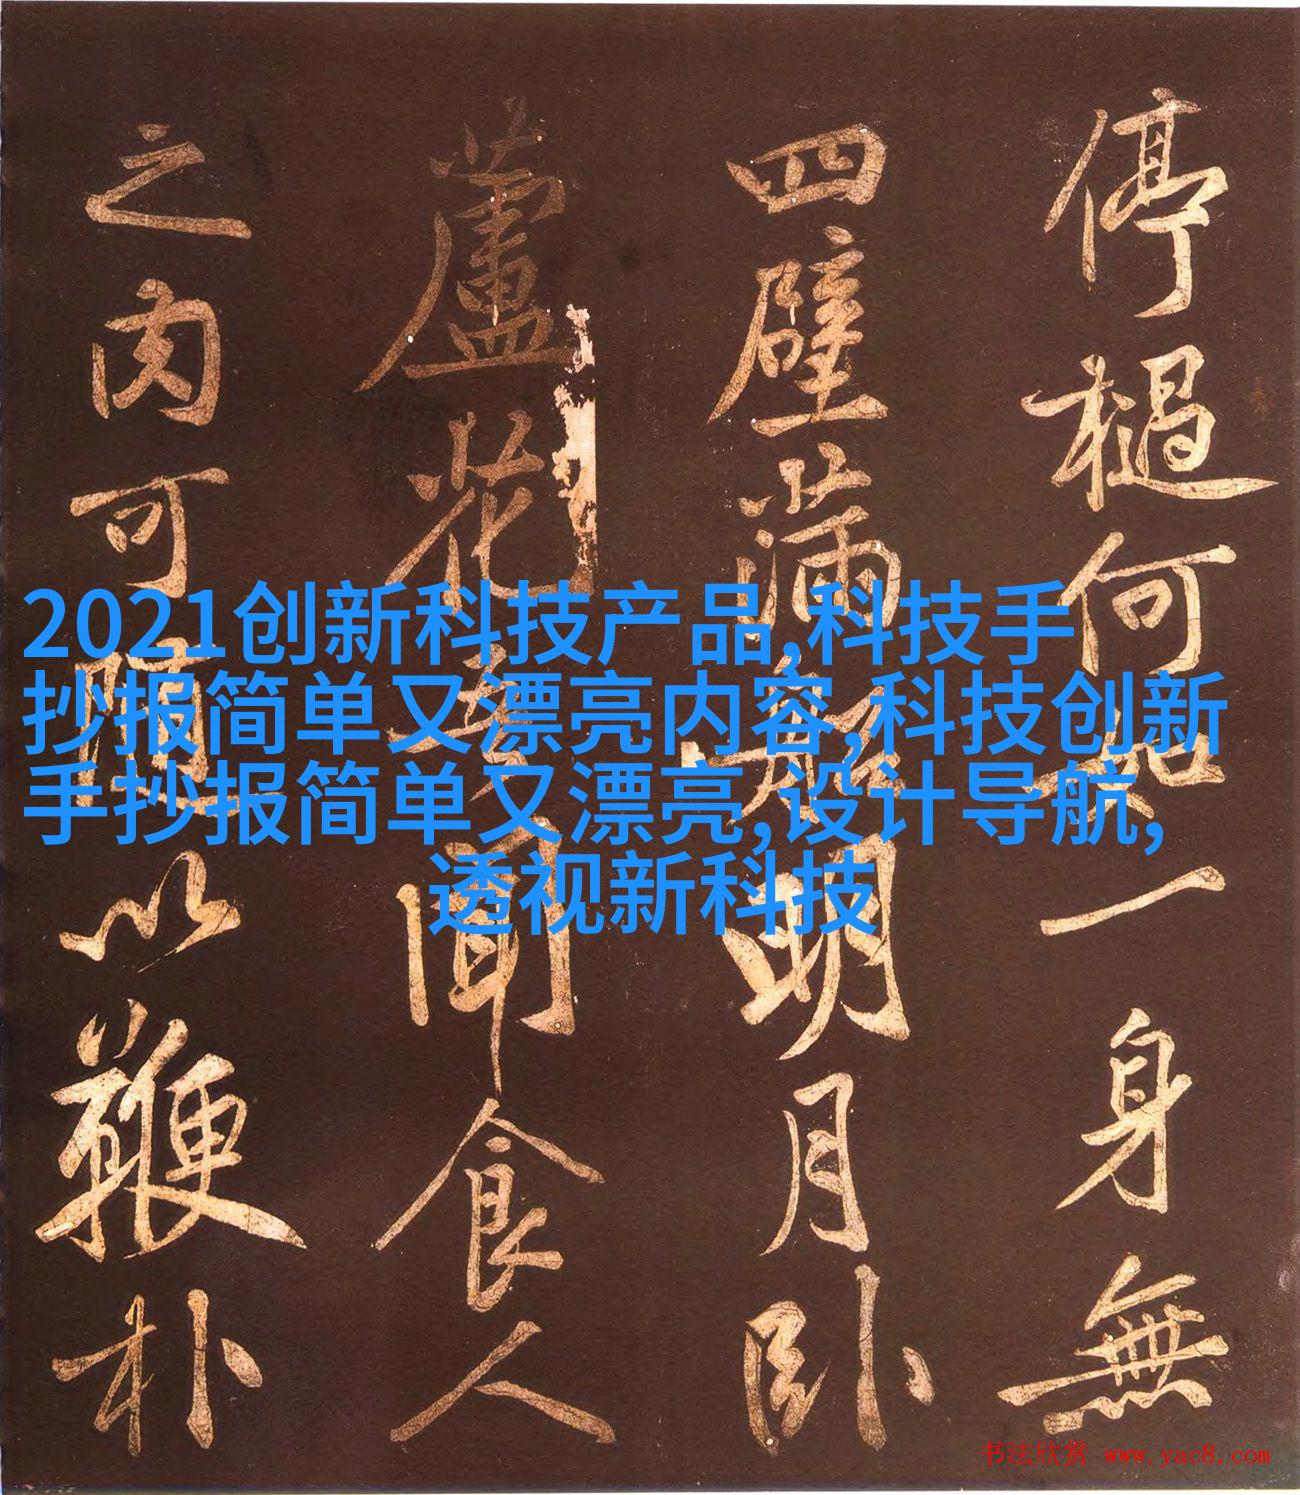 2021创新科技产品,科技手
抄报简单又漂亮内容,科技创新
手抄报简单又漂亮,设计导航,
透视新科技
停檛何如一身無
四壁滿船明月卧
蘆花吾聞食人
之肉可隨以鞭朴
书法欣赏 www.yac8.com